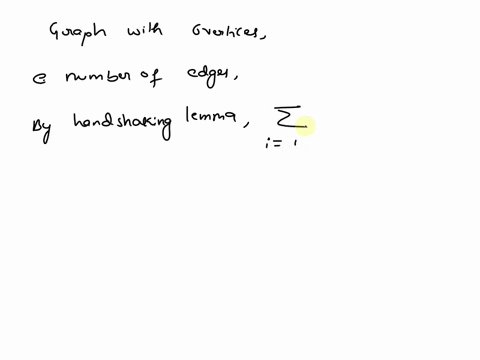 Graph with vertices,
e number of edges,
By handshaking lemma, Σ
i = 1